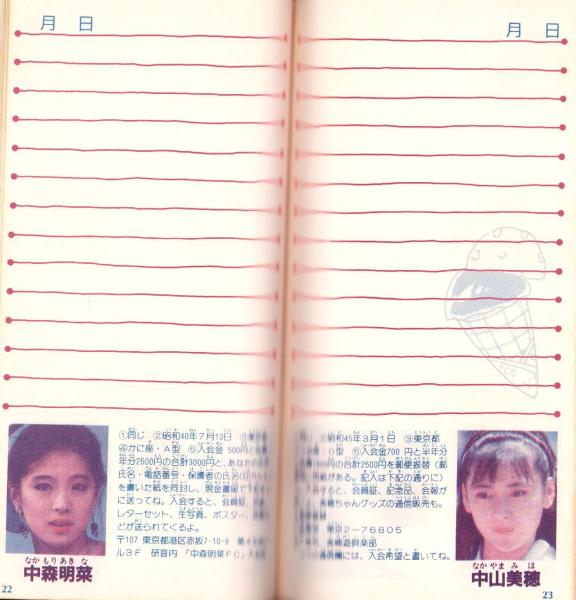 月 日
①同じ ②昭和40年7月13日 ③
④かに座・A型 ⑤入会金 500円
年分2500円の合計3000円と、あなたの
氏名・電話番号・保護者の氏名
を書いた紙を同封し、現金書留で下
に送ってね。入会すると、会員証、
レターセット、生写真、ポスター、
どが送られてくるよ。
〒107 東京都港区赤坂7-10-9
ル3F 研音内「中森明菜FC」
なかもりあきな
中森明菜
22
月 日
②昭和45年3月1日 ③東京都
・O型 ⑤入会金700円と半年分
円の合計2500円を郵便振替(郵
がある。記入は下記の通りに)
すると、会員証、記念品、会報が
美穂ちゃんグッズの通信販売も。
東京2-76805
通信欄には、入会希望と書いてね。
なかやまみほ
中山美穂
23